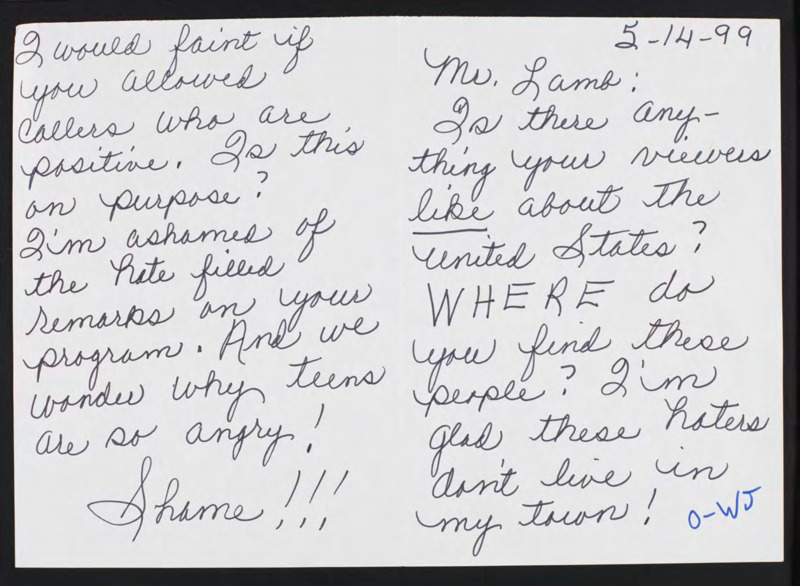 5-14-99
Mr. Lamb:
Is there any-
thing your viewers
like about the
United States?
WHERE do
you find these
people? I'm
glad these haters
don't live in
my town!
O-WJ
I would faint if
you allowed
callers who are
positive. Is this
on purpose?
I'm ashamed of
the hate filled
remarks on your
program. And we
wonder why teens
are so angry!
Shame!!!